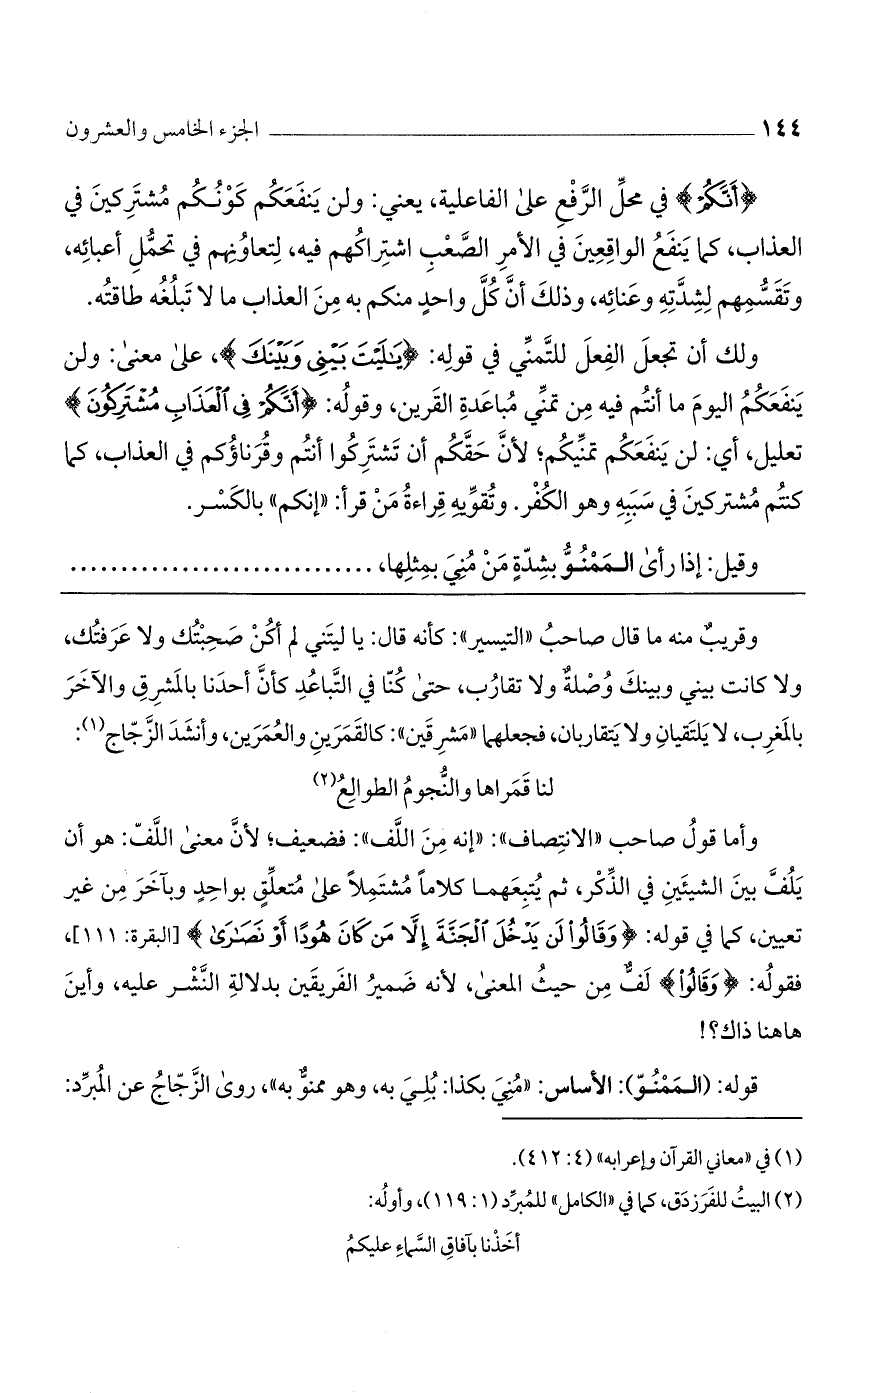 ١٤٤ ــــــــــــــــــــــــــــــــــــــــ الجزء الخامس والعشرون
﴿أَنَّكُمْ﴾ في محلِّ الرَّفْعِ علىٰ الفاعلية، يعني: ولن يَنفَعَكُم كَوْنُـكُم مُشتَرِكينَ في
العذاب، كما يَنفَعُ الواقِعِينَ في الأمرِ الصَّعْبِ اشتِراكُهم فيه، لِتعاوُنِهم في تحمُّلِ أعبائِه،
وتَقَسُّمِهم لِشِدَّتِهِ وعَنائِه، وذلكَ أنَّ كُلَّ واحدٍ منكم به مِنَ العذاب ما لا تَبلُغُه طاقتُه.
ولك أن تجعلَ الفِعلَ للتَّمنِّي في قولِه: ﴿يَـٰلَيْتَ بَيْنِى وَبَيْنَكَ﴾، علىٰ معنىٰ: ولن
يَنفَعَكُمُ اليومَ ما أنتُم فيه مِن تمنِّي مُباعَدةِ القَرين، وقولُه: ﴿أَنَّكُمْ فِى ٱلْعَذَابِ مُشْتَرِكُونَ﴾
تعليل، أي: لن يَنفَعَكُم تمنِّيكُم؛ لأنَّ حَقَّكُم أن تَشتَرِكُوا أنتُم وقُرَناؤُكم في العذاب، كما
كنتُم مُشتركينَ في سَبَبِه وهو الكُفْر. وتُقوِّيهِ قِراءةُ مَنْ قرأ: «إنكم» بالكَسْـر.
وقيل: إذا رأىٰ الـمَمْنُـوُّ بشِدّةٍ مَنْ مُنِيَ بمِثلِها، ..............................
وقريبٌ منه ما قال صاحبُ «التيسير»: كأنه قال: يا ليتَني لم أكُنْ صَحِبْتُك ولا عَرَفتُك،
ولا كانت بيني وبينكَ وُصْلةٌ ولا تقارُب، حتىٰ كُنّا في التَّباعُدِ كأنَّ أحدَنا بالمَشرِقِ والآخَرَ
بالمَغرِب، لا يَلتَقيانِ ولا يَتقاربان، فجعلهما «مَشرِقَين»: كالقَمَرَينِ والعُمَرَين، وأنشَدَ الزَّجّاج(١):
لنا قَمَراها والنُّجومُ الطوالِعُ(٢)
وأما قولُ صاحب «الانتِصاف»: «إنه مِنَ اللَّف»: فضعيف؛ لأنَّ معنىٰ اللَّفّ: هو أن
يَلُفَّ بينَ الشيئَينِ في الذِّكْر، ثم يُتبِعَهمـا كلاماً مُشتَمِلاً علىٰ مُتعلِّقٍ بواحِدٍ وبآخَرَ مِن غير
تعيين، كما في قوله: ﴿وَقَالُوا۟ لَن يَدْخُلَ ٱلْجَنَّةَ إِلَّا مَن كَانَ هُودًا أَوْ نَصَـٰرَىٰ﴾ [البقرة: ١١١]،
فقولُه: ﴿وَقَالُوا۟﴾ لَفٌّ مِن حيثُ المعنىٰ، لأنه ضَميرُ الفَريقَين بدلالةِ النَّشْـرِ عليه، وأينَ
هاهنا ذاك؟!
قوله: (الـمَمْنُـوّ): الأساس: «مُنِيَ بكذا: بُلِـيَ به، وهو ممنوٌّ به»، روىٰ الزَّجّاجُ عن المُبرِّد:
(١) في «معاني القرآن وإعرابه» (٤: ٤١٢).
(٢) البيتُ للفَرَزدَق، كما في «الكامل» للمُبرِّد (١: ١١٩)، وأولُه:
أخَذْنا بآفاقِ السَّماءِ عليكمُ